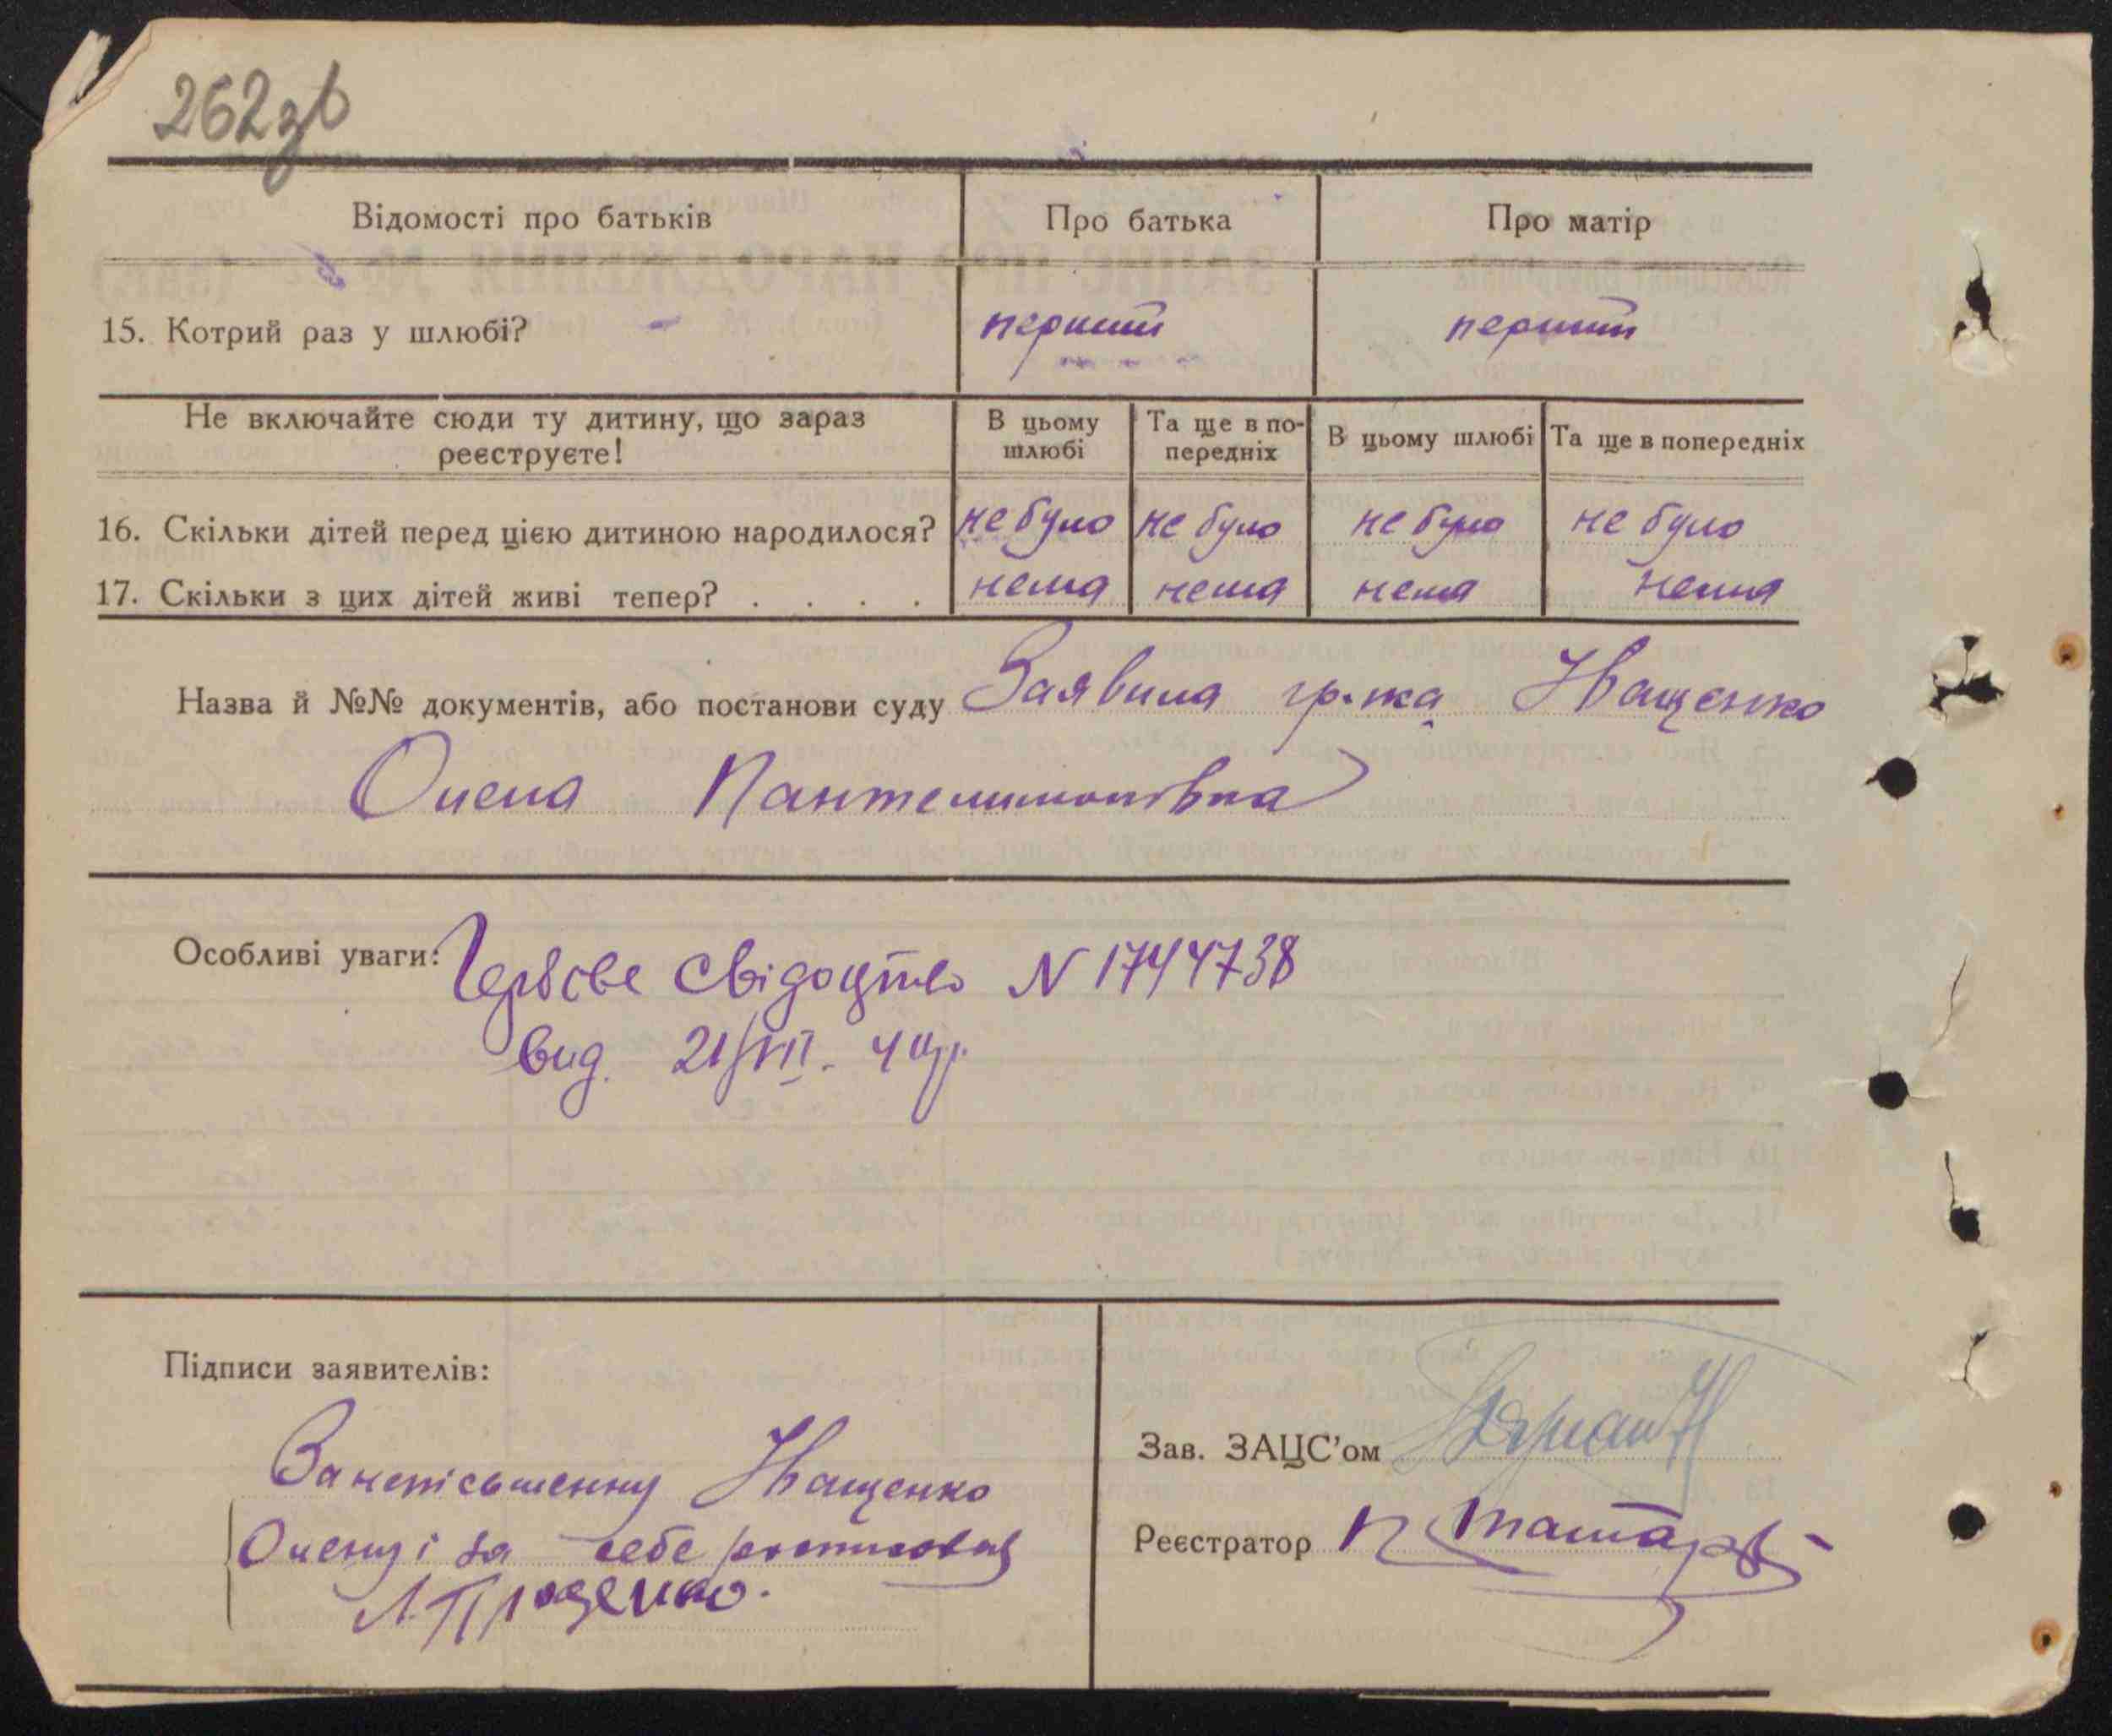 262зв
Відомості про батьків Про батька Про матір
15. Котрий раз у шлюбі? перший перший
Не включайте сюди ту дитину, що зараз реєструєте! В цьому шлюбі Та ще в попередніх В цьому шлюбі Та ще в попередніх
16. Скільки дітей перед цією дитиною народилося? не було не було не було не було
17. Скільки з цих дітей живі тепер? . . . . нема нема нема нема
Назва й №№ документів, або постанови суду Заявила гр-ка Іващенко
Олена Пантелимонівна
Особливі уваги: свідоцтво N 1744738
вид. 21/VII. 40р.
Підписи заявителів:
За неписьменну Іващенко
Олену і за себе розписовав
Л. Проценко.
Зав. ЗАЦС’ом
Реєстратор